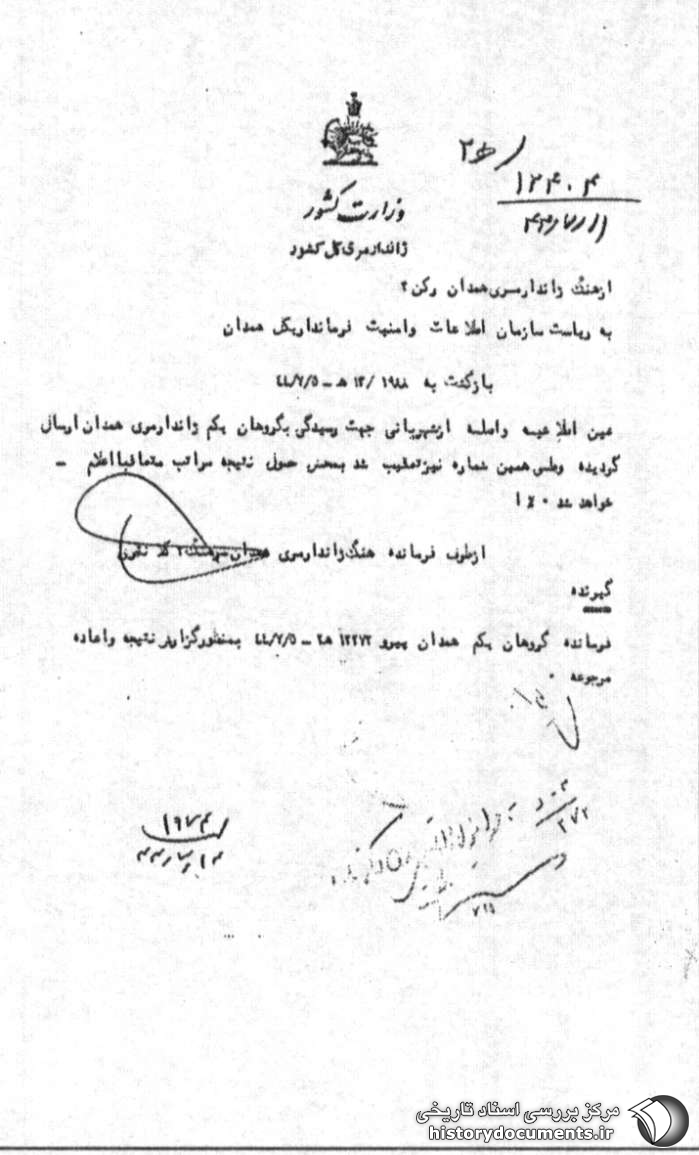 ۲ﻫ/
۱۲۴۰۴
۴۴/۷/۱۱
وزارت کشور
ژاندارمری کل کشور
از هنگ ژاندارمری همدان رکن ۲
به ریاست سازمان اطلاعات وامنیت فرمانداریکل همدان
بازگشت به ۱۹۸۸ /۱۳ ﻫ - ۴۴/۷/۵
عین اطلاعیه واصله ازشهربانی جهت رسیدگی بگروهان یکم ژاندارمری همدان ارسال
گردیده وطی همین شماره نیزتعقیب شد بمحض حصول نتیجه مراتب متعاقبا اعلام -
خواهد شد
ازطرف فرمانده هنگ ژاندارمری همدان
گیرنده
فرمانده گروهان یکم همدان پیرو ۱۲۲۷۲ ﻫ۲ - ۴۴/۷/۵ بمنظورگزارش نتیجه واعاده
مرجوعه ۰
۱۹۷۴
۴۴/۷/۱۴
مرکز بررسی اسناد تاریخی
historydocuments.ir